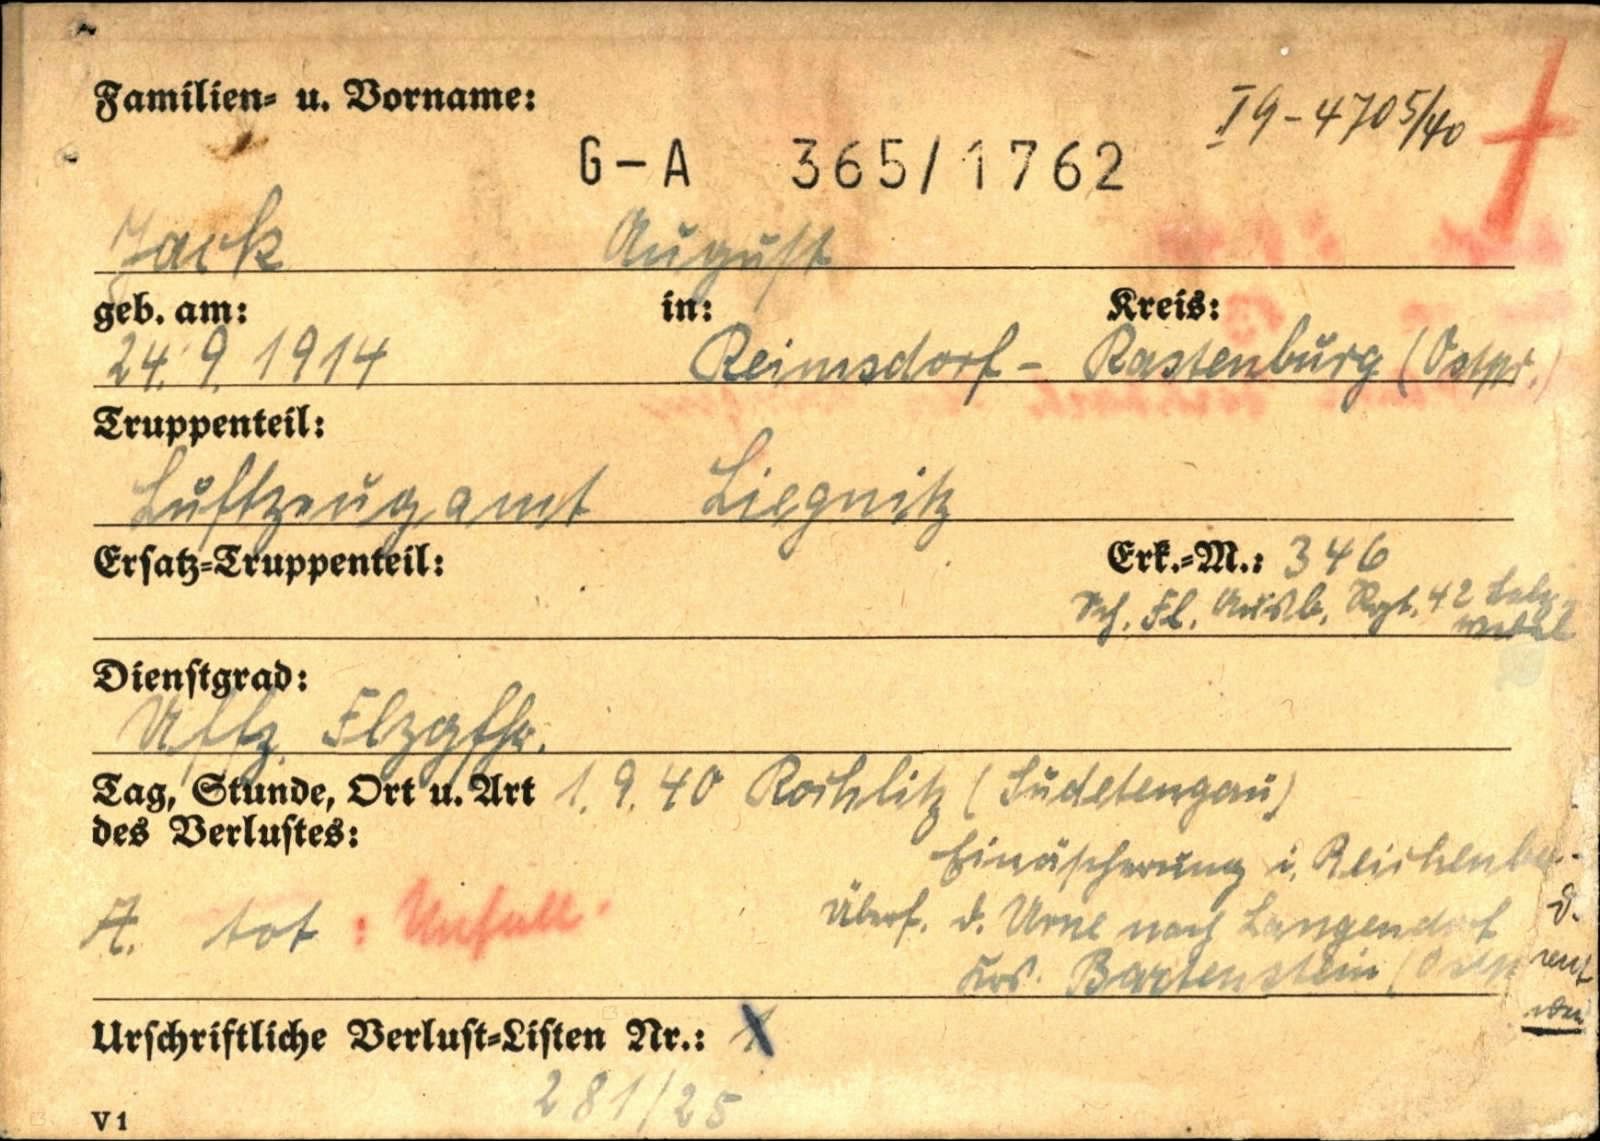 Familien- u. Vorname:
I 9-4705/40
G-A 365/1762
Jack August
geb. am: in: Kreis:
24.9.1914 Reimsdorf- Rastenburg (Ostpr.)
Truppenteil:
Luftzeugamt Liegnitz
Ersatz-Truppenteil: Erk.-M.: 346
Fl. Ausb. Rgt. 42
Dienstgrad:
Uffz. Flzgfhr.
Tag, Stunde, Ort u. Art 1.9.40 Rochlitz (Sudetengau)
des Verlustes:
Einäscherung i.
A. tot : Unfall. Überf. d. Urne nach Langendorf
Krs. Bartenstein
Urschriftliche Verlust-Listen Nr.:
281/25
V 1